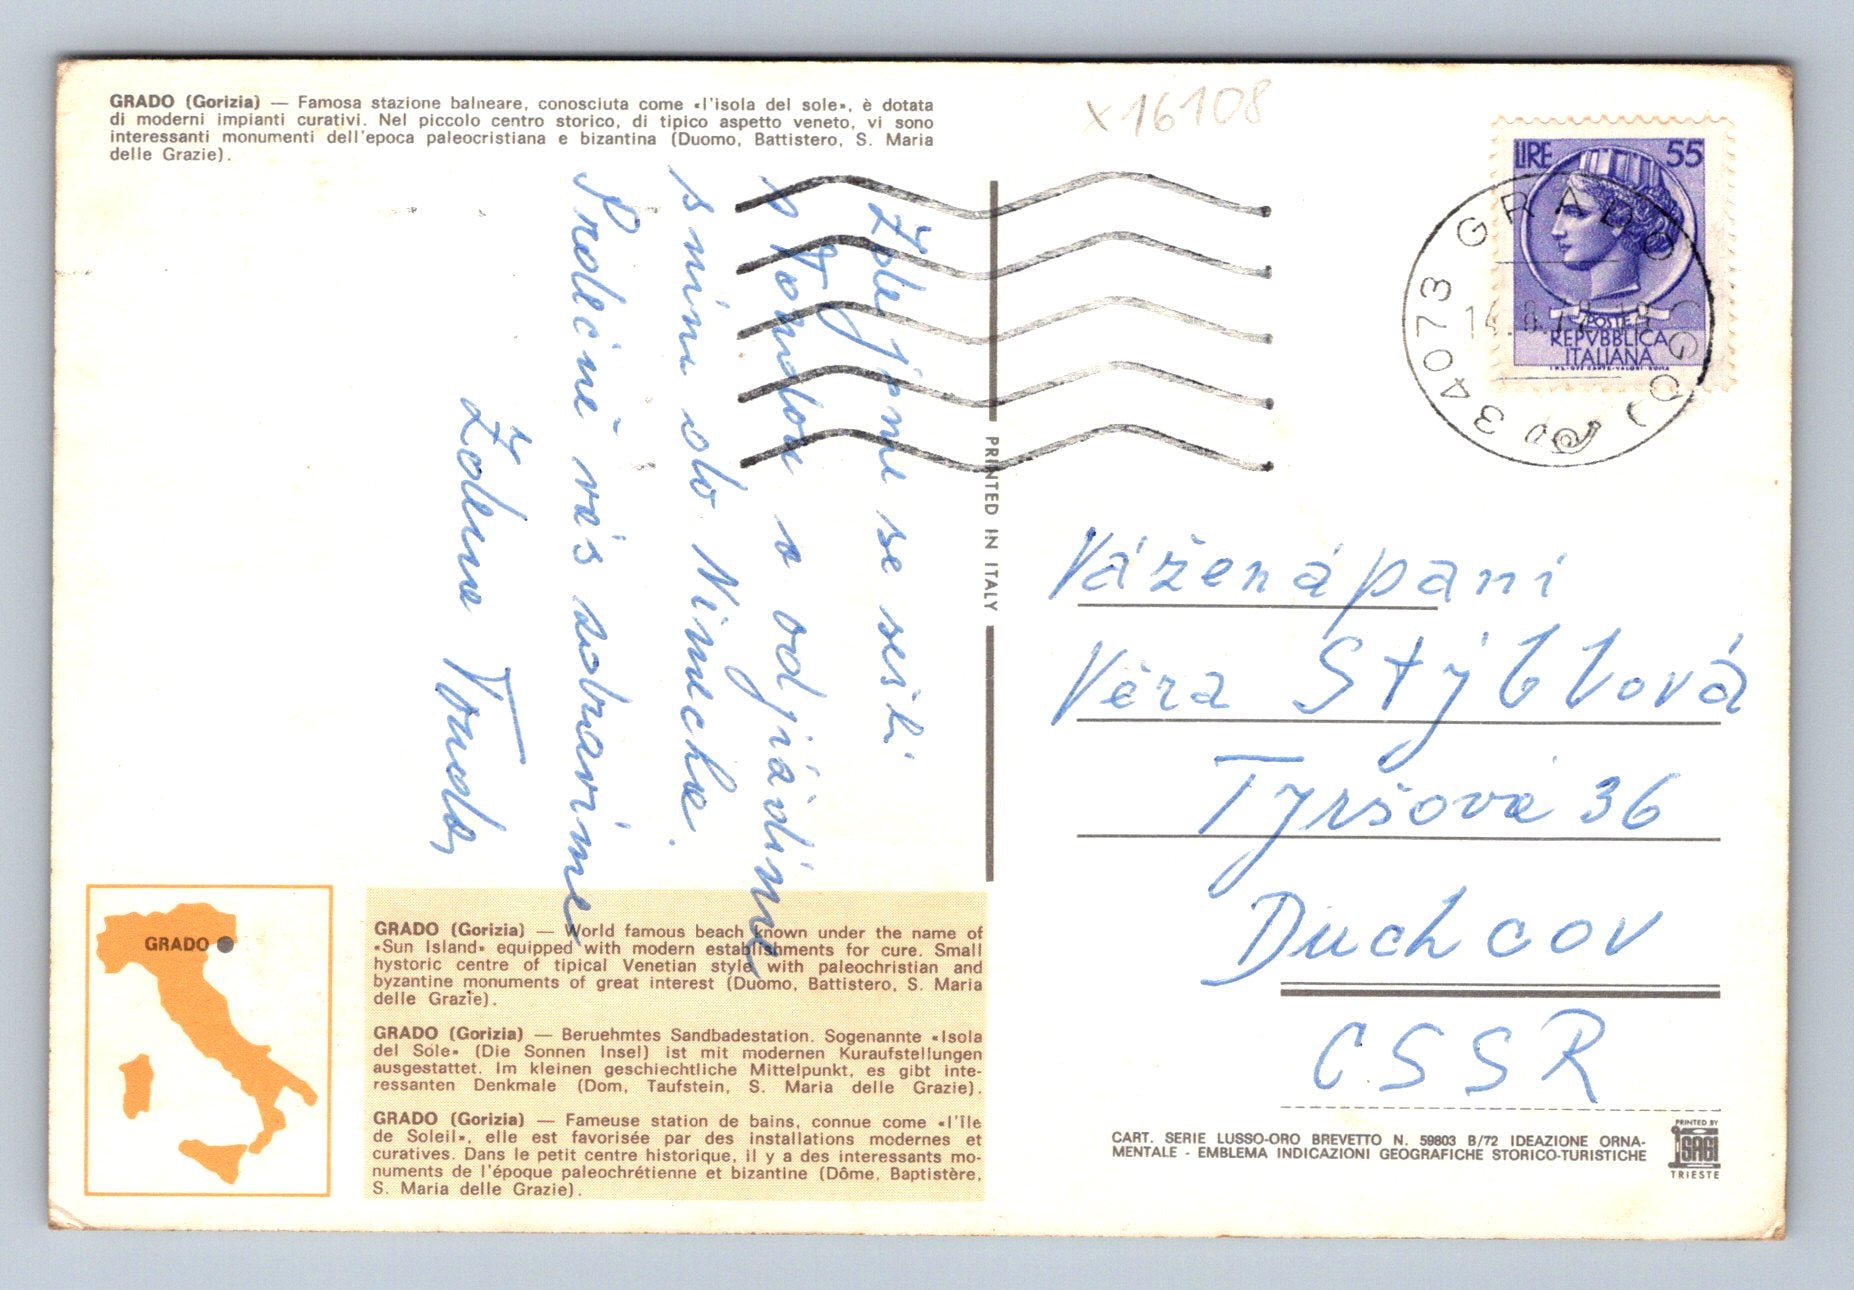 GRADO (Gorizia) — Famosa stazione balneare, conosciuta come «l'isola del sole», è dotata
di moderni impianti curativi. Nel piccolo centro storico, di tipico aspetto veneto, vi sono
interessanti monumenti dell'epoca paleocristiana e bizantina (Duomo, Battistero, S. Maria
delle Grazie).
x16108
LIRE 55
POSTE
REPVBBLICA
ITALIANA
34073 GRADO (GO)
Zde jsme se sešli
s Tondou a odjíždíme
s ním do Německa.
Srdečně vás zdravíme
Zdena Tonda
PRINTED IN ITALY
Vážená paní
Věra Stýblová
Tyršova 36
Duchcov
CSSR
GRADO
GRADO (Gorizia) — World famous beach known under the name of
«Sun Island» equipped with modern establishments for cure. Small
hystoric centre of tipical Venetian style with paleochristian and
byzantine monuments of great interest (Duomo, Battistero, S. Maria
delle Grazie).
GRADO (Gorizia) — Beruehmtes Sandbadestation. Sogenannte «Isola
del Sole» (Die Sonnen Insel) ist mit modernen Kuraufstellungen
ausgestattet. Im kleinen geschiechtliche Mittelpunkt, es gibt inte-
ressanten Denkmale (Dom, Taufstein, S. Maria delle Grazie).
GRADO (Gorizia) — Fameuse station de bains, connue come «l'île
de Soleil», elle est favorisée par des installations modernes et
curatives. Dans le petit centre historique, il y a des interessants mo-
numents de l'époque paleochrétienne et bizantine (Dôme, Baptistère,
S. Maria delle Grazie).
CART. SERIE LUSSO-ORO BREVETTO N. 59803 B/72 IDEAZIONE ORNA-
MENTALE - EMBLEMA INDICAZIONI GEOGRAFICHE STORICO-TURISTICHE
PRINTED BY
SAGI
TRIESTE